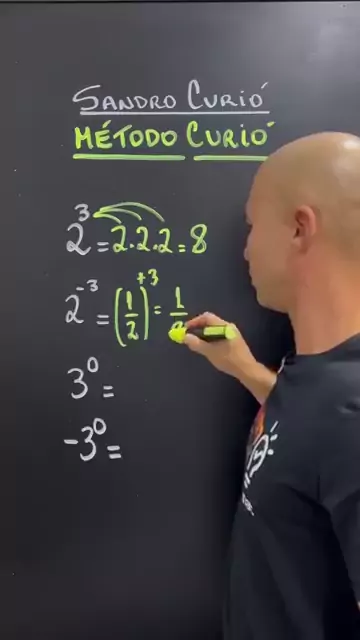 SANDRO CURIÓ
MÉTODO CURIÓ
2³ = 2.2.2 = 8
2⁻³ = (1/2)⁺³ = 1/
3⁰ =
-3⁰ =